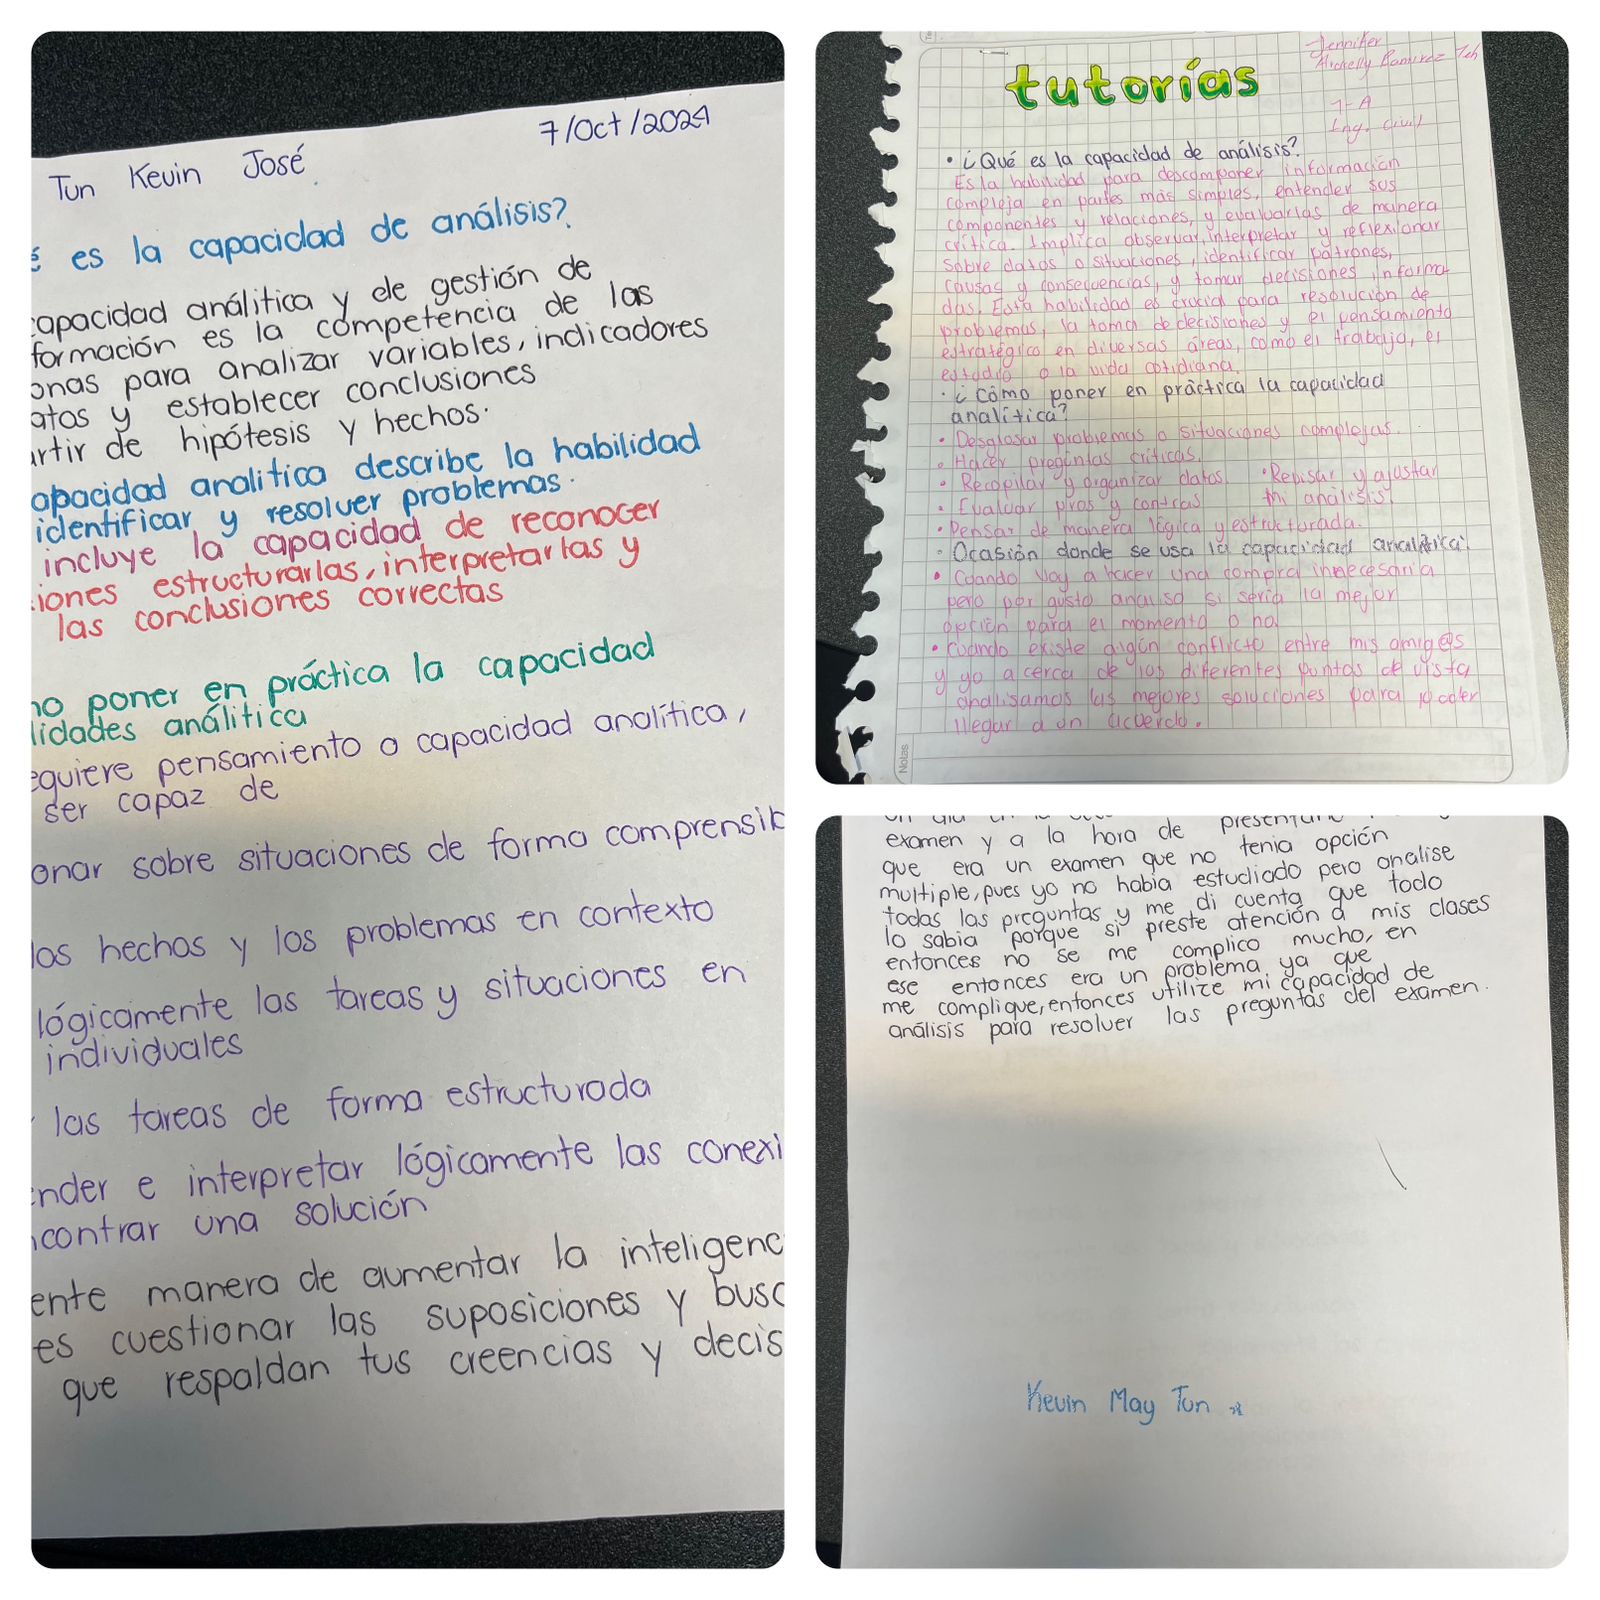 7/Oct/2024
Tun Kevin José
é es la capacidad de análisis?
capacidad análitica y de gestión de
formación es la competencia de las
onas para analizar variables, indicadores
atos y establecer conclusiones
artir de hipótesis y hechos.
apacidad analitica describe la habilidad
identificar y resolver problemas.
incluye la capacidad de reconocer
iones estructurarlas, interpretarlas y
las conclusiones correctas
mo poner en práctica la capacidad
lidades análitica
equiere pensamiento o capacidad analítica,
ser capaz de
onar sobre situaciones de forma comprensib
los hechos y los problemas en contexto
lógicamente las tareas y situaciones en
individuales
las tareas de forma estructurada
ender e interpretar lógicamente las conexi
ncontrar una solución
ente manera de aumentar la inteligenc
es cuestionar las suposiciones y busc
que respaldan tus creencias y decis
Jennifer
Ramirez Teh
tutorías
1-A
Ing. Civil
• ¿Qué es la capacidad de análisis?
Es la habilidad para descomponer información
compleja en partes más simples, entender sus
componentes y relaciones, y evaluarlas de manera
crítica. Implica observar, interpretar y reflexionar
sobre datos o situaciones, identificar patrones,
causas y consecuencias, y tomar decisiones informa-
das. Esta habilidad es crucial para resolución de
problemas, la toma de decisiones y el pensamiento
estratégico en diversas áreas, como el trabajo, el
estudio o la vida cotidiana.
• ¿Cómo poner en práctica la capacidad
analítica?
• Desglosar problemas o situaciones complejas.
• Hacer preguntas críticas.
• Recopilar y organizar datos. • Revisar y ajustar
• Evaluar pros y contras mi análisis
• Pensar de manera lógica y estructurada.
• Ocasión donde se usa la capacidad analítica.
• Cuando voy a hacer una compra innecesaria
pero por gusto analiso si sería la mejor
opción para el momento o no.
• Cuando existe algún conflicto entre mis amig@s
y yo a cerca de los diferentes puntos de vista
analisamos las mejores soluciones para poder
llegar a un acuerdo.
Notas
examen y a la hora de
que era un examen que no tenia opción
multiple, pues yo no habia estudiado pero analise
todas las preguntas y me di cuenta que todo
lo sabia porque si preste atención a mis clases
entonces no se me complico mucho, en
ese entonces era un problema ya que
me complique, entonces utilize mi capacidad de
análisis para resolver las preguntas del examen.
Kevin May Tun